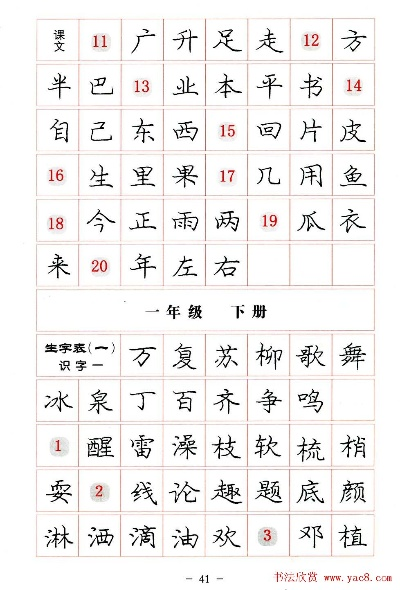 课文 11 广 升 足 走 12 方
半 巴 13 业 本 平 书 14
自 己 东 西 15 回 片 皮
16 生 里 果 17 几 用 鱼
18 今 正 雨 两 19 瓜 衣
来 20 年 左 右
一年级 下册
生字表(一) 识字一 万 复 苏 柳 歌 舞
冰 泉 丁 百 齐 争 鸣
1 醒 雷 澡 枝 软 梳 梢
耍 2 线 论 趣 题 底 颜
淋 洒 滴 油 欢 3 邓 植
- 41 -
书法欣赏 www.yac8.com